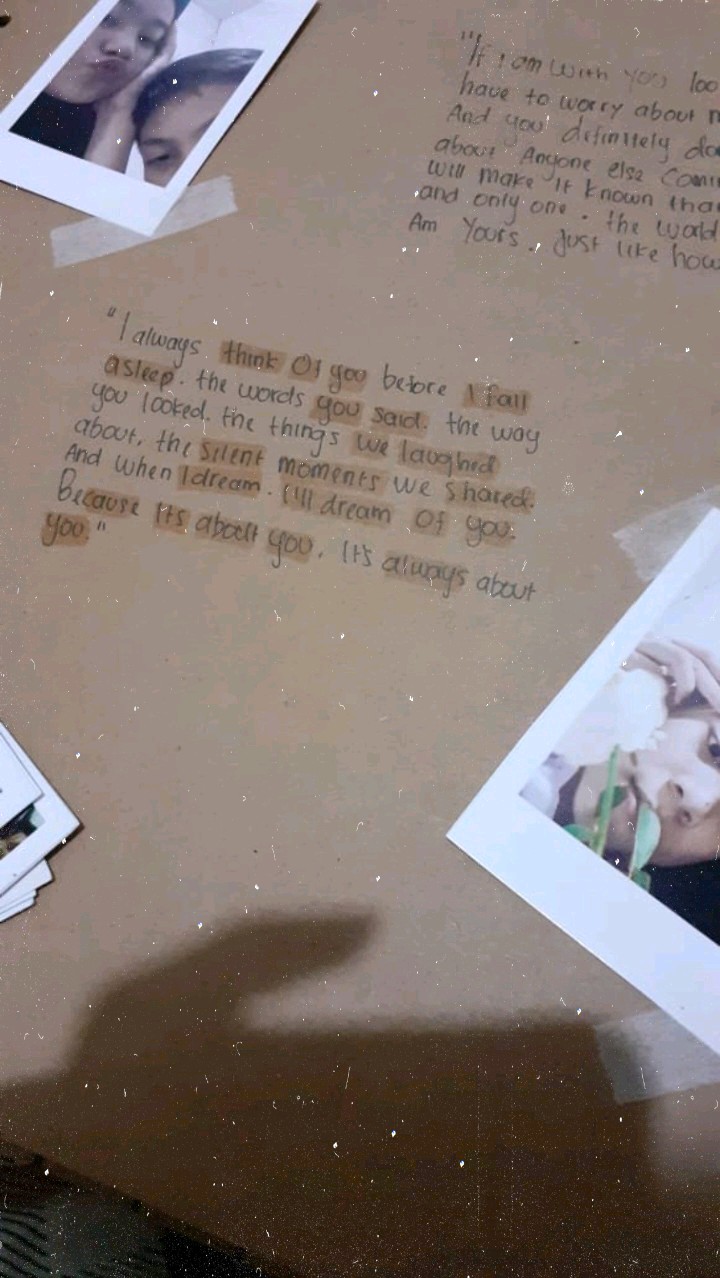 "If I am with you loo
have to worry about
And you definitely do
about Anyone else Comi
will make it known tha
and only one. the world
Am Yours. Just like how
"I always think Of you before I fall
asleep. the words you said. the way
you looked. the things we laughed
about, the silent moments we shared.
And when I dream. I'll dream Of you.
Because Its about you. It's always about
you."